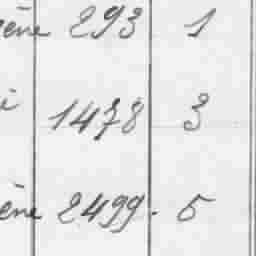 ène 293 1
1478 3
ène 2499. 5